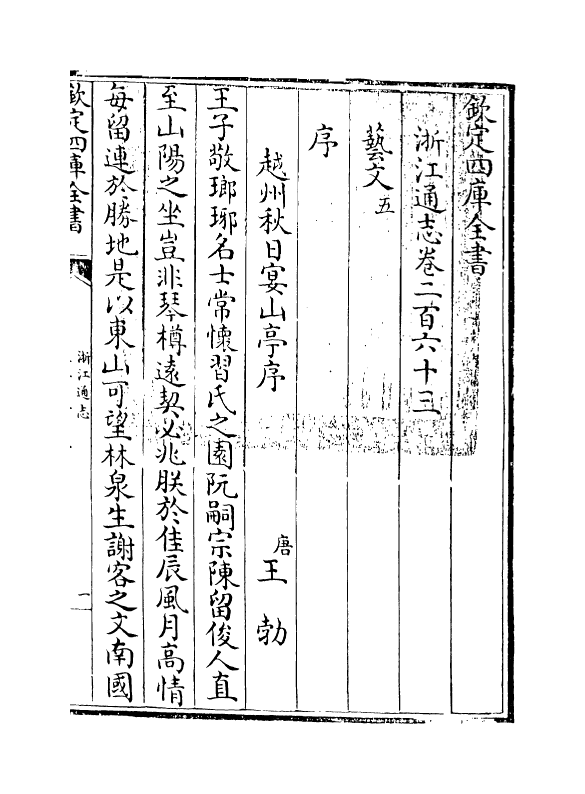 欽定四庫全書
浙江通志卷二百六十三
藝文五
序
越州秋日宴山亭序
唐王勃
王子敬瑯琊名士常懷習氏之園阮嗣宗陳留俊人直
至山陽之坐豈非琴樽遠契必兆朕於佳辰風月高情
每留連於勝地是以東山可望林泉生謝客之文南國
欽定四庫全書
浙江通志
一